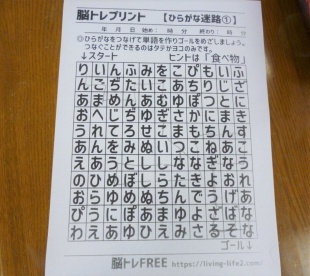 脳トレプリント 【ひらがな迷路①】
年 月 日 始め: 時 分 終わり: 時 分
◎ひらがなをつなげて単語を作りゴールをめざしましょう。
つなぐことができるのはタテかヨコのみです。
↓スタート ヒントは「食べ物」
りいんふみをこぴもいふ
んごぢたいこあちりじざ
あまめんあむゆぽつとに
おへじちゆぎさかにまき
うれてろせこまもちんす
あんをみぬいつこねあこ
えあうとししななぎなう
のひめぼしらたきよおれ
おらゆめぬちんでうげあ
ぴうにぽあまゆよざばな
わえあゆひえみさるそな
ゴール↓
脳トレFREE https://living-life2.com/